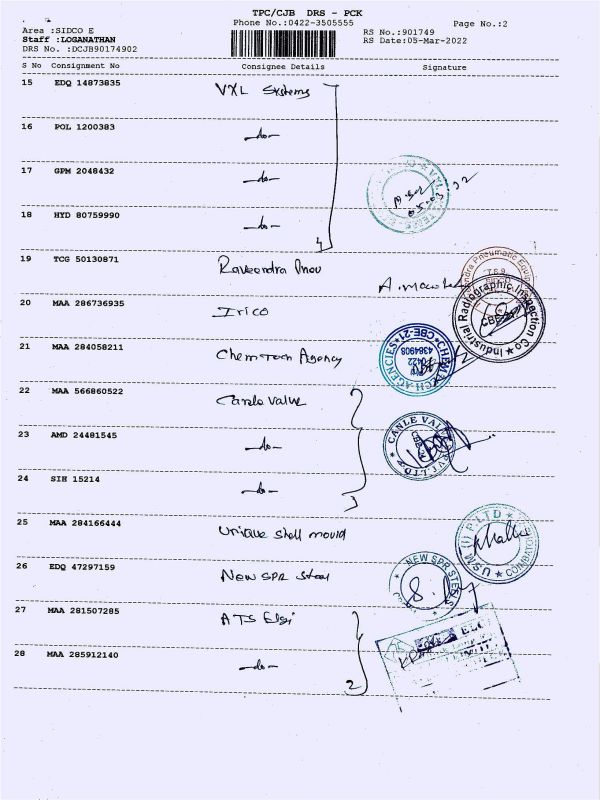 TPC/CJB DRS - PCK
Phone No.:0422-3505555
Page No.:2
Area :SIDCO E
Staff :LOGANATHAN
DRS No. :DCJB90174902
RS No.:901749
RS Date:05-Mar-2022
S No Consignment No Consignee Details Signature
15 EDQ 14873835 VXL Systems
16 POL 1200383 -do-
17 GPM 2048432 -do-
18 HYD 80759990 -do-
4
19 TCG 50130871 Raveendra Pneu
20 MAA 286736935 Irico
Industrial Radiographic Inspection Co
21 MAA 284058211 Chemtech Agency
CHEMTECH AGENCIES CBE-21
4384908
22 MAA 566860522 Canle Valve
CANLE VALVE
23 AMD 24481545 -do-
24 SIH 15214 -do-
3
25 MAA 284166444 Unique Shell mould
USM (I) P LTD COIMBATORE
26 EDQ 47297159 New SPR Steel
NEW SPR STEELS
27 MAA 281507285 ATS Elgi
28 MAA 285912140 -do-
2